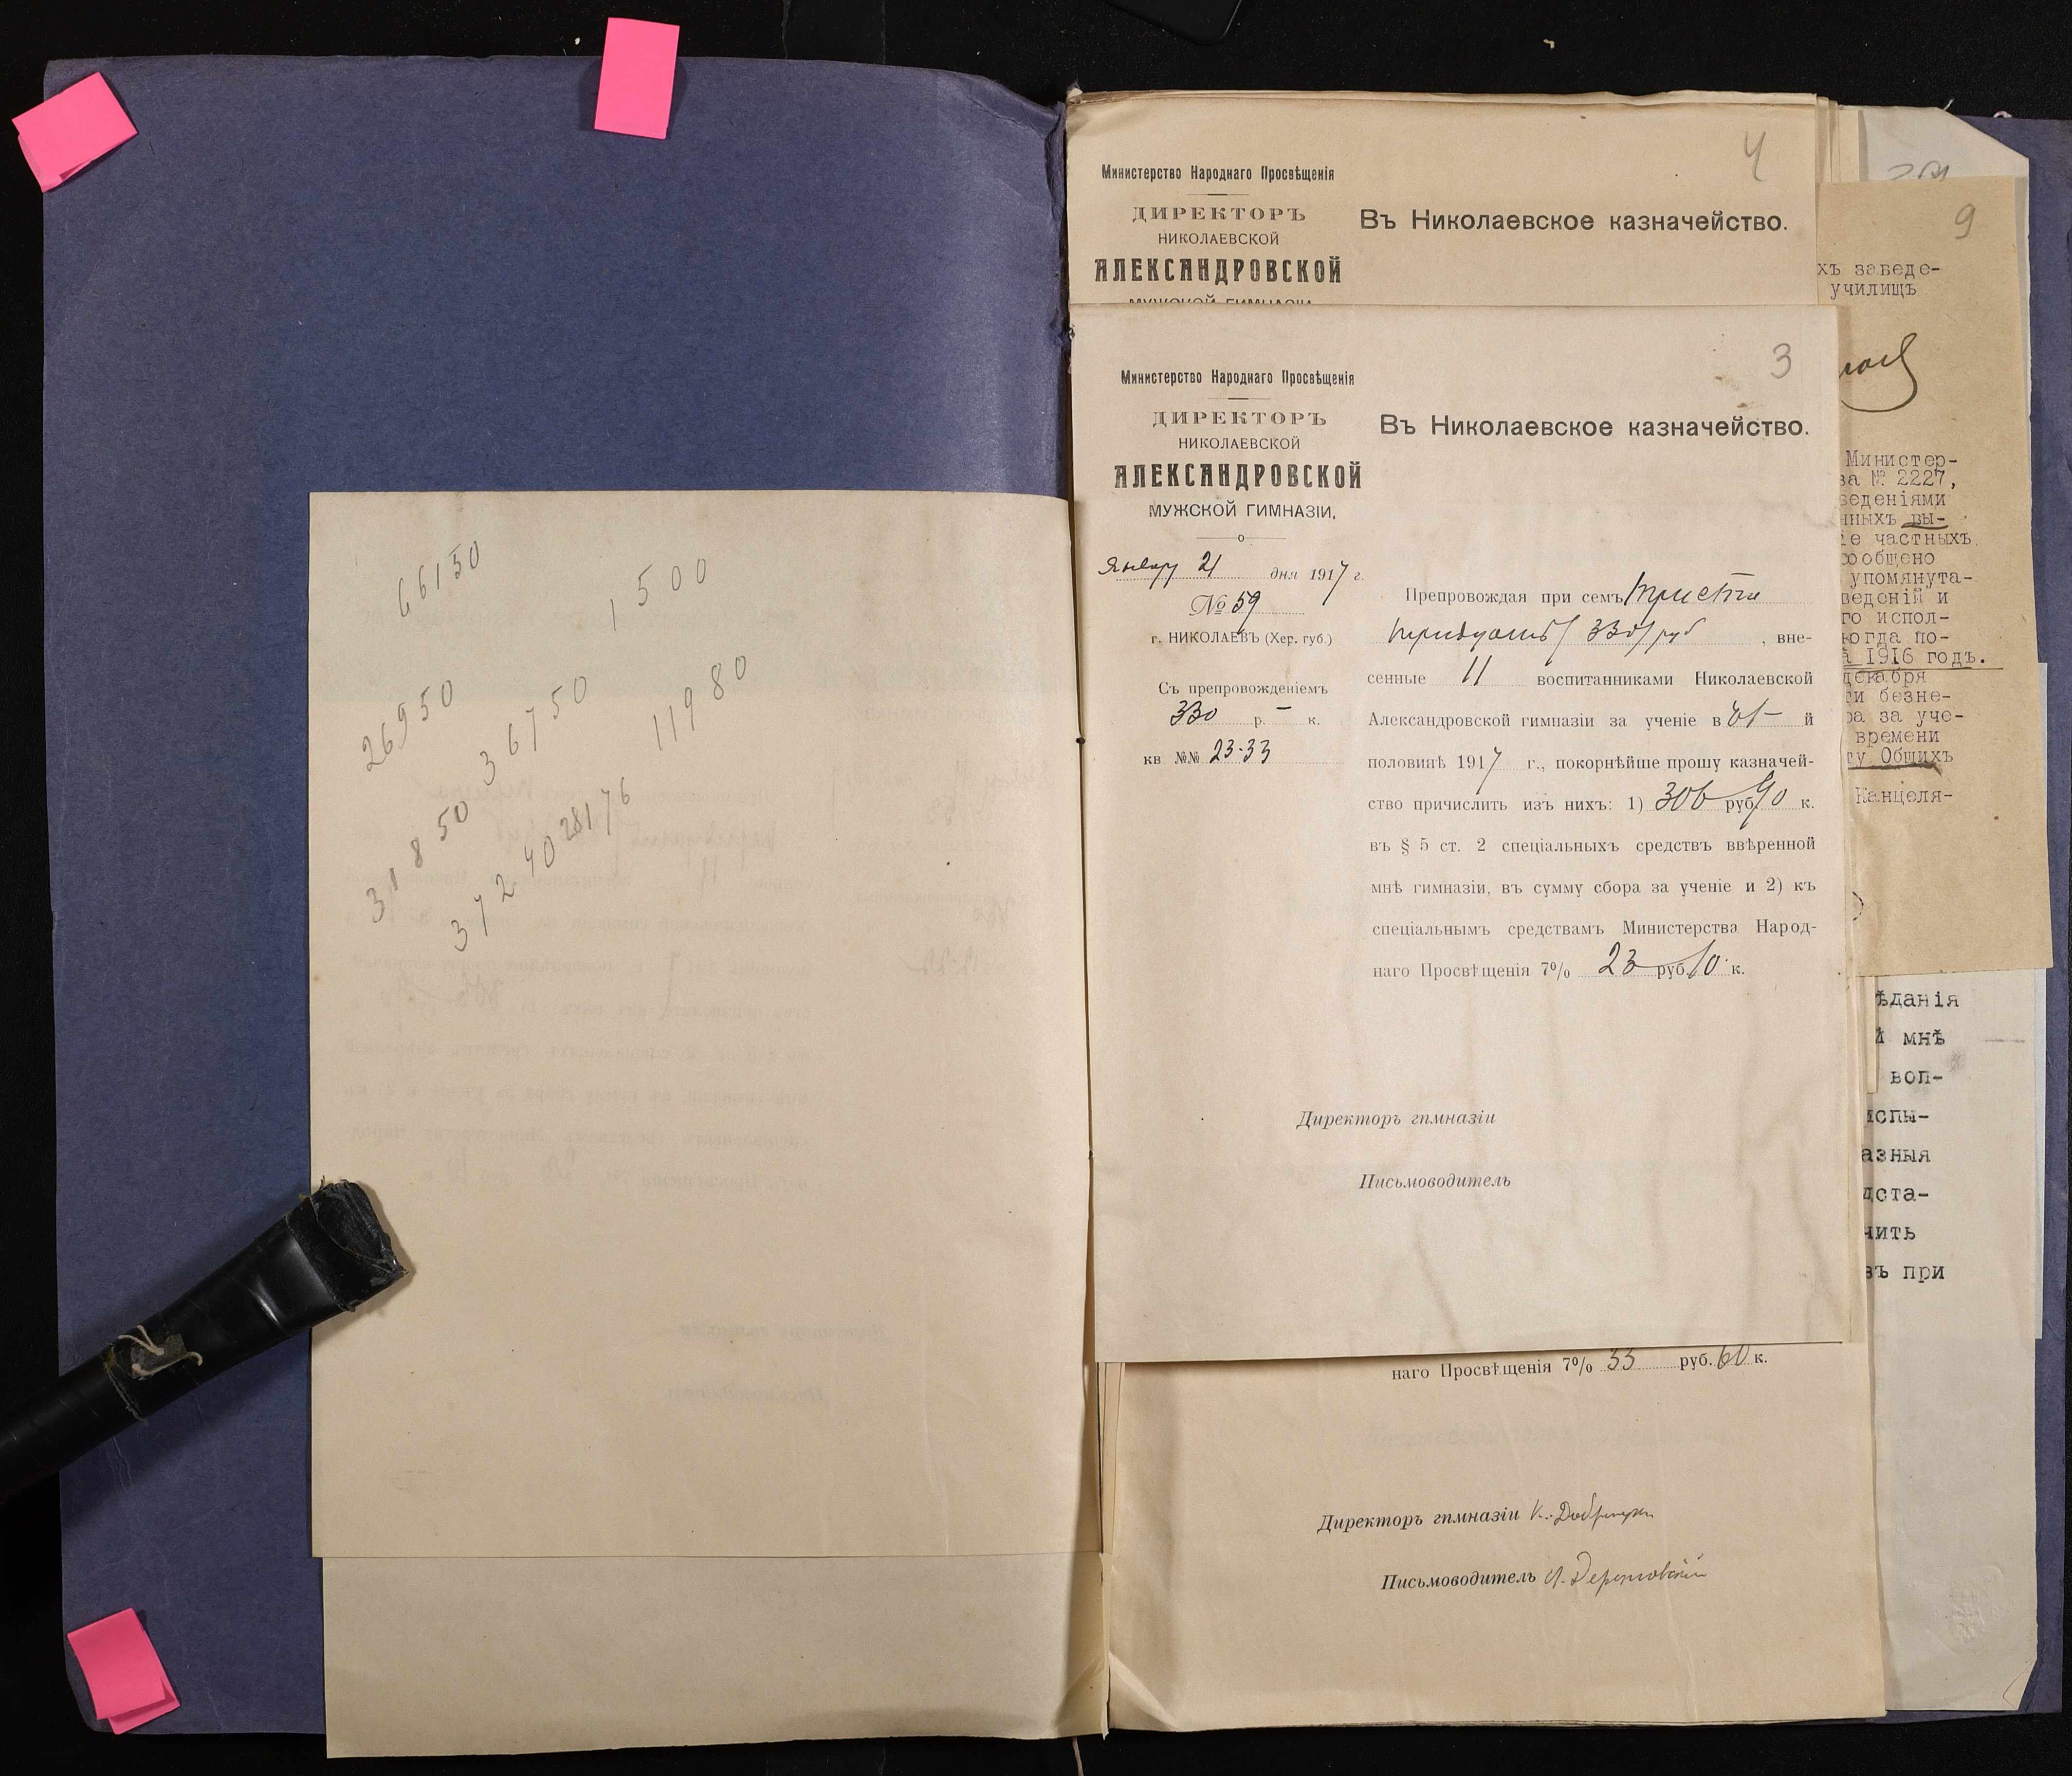 66150
1500
26950
36750
11980
31850
37240
28176
4
Министерство Народнаго Просвѣщенія
ДИРЕКТОРЪ
НИКОЛАЕВСКОЙ
АЛЕКСАНДРОВСКОЙ
МУЖСКОЙ ГИМНАЗІИ
Въ Николаевское казначейство.
3
Министерство Народнаго Просвѣщенія
ДИРЕКТОРЪ
НИКОЛАЕВСКОЙ
АЛЕКСАНДРОВСКОЙ
МУЖСКОЙ ГИМНАЗІИ,
Январ 21 дня 1917 г.
№ 59
г. НИКОЛАЕВЪ (Хер. губ.)
Съ препровожденіемъ
330 р. — к.
кв №№ 23-33
Въ Николаевское казначейство.
Препровождая при семъ триста
тридцать / 330 / руб , вне-
сенные 11 воспитанниками Николаевской
Александровской гимназіи за ученіе въ 1 — й
половинѣ 1917 г., покорнѣйше прошу казначей-
ство причислить изъ нихъ: 1) 306 руб 90 к.
въ § 5 ст. 2 спеціальныхъ средствъ ввѣренной
мнѣ гимназіи, въ сумму сбора за ученіе и 2) къ
спеціальнымъ средствамъ Министерства Народ-
наго Просвѣщенія 7% 23 руб. 10 к.
Директоръ гимназіи
Письмоводитель
наго Просвѣщенія 7% 33 руб. 60 к.
Директоръ гимназіи
Письмоводитель
9
хъ заведе-
училищъ
Министер-
ва № 2227,
веденіями
нныхъ вы-
іе частныхъ
сообщено
упомянута-
веденій и
го испол-
когда по-
а 1916 годъ.
декабря
ти безне-
ра за уче-
времени
ту Общихъ
Канцеля-
ѣданія
й мнѣ
воп-
испы-
азныя
дста-
чить
въ при